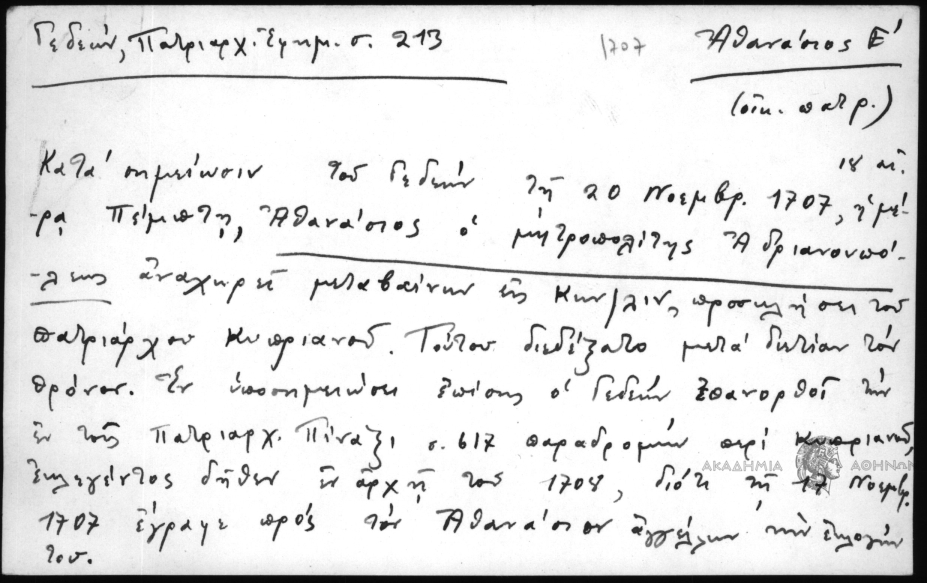 Γεδεών, Πατριαρχ. Ἐφημ. σ. 213
1707
Ἀθανάσιος Ε΄
(οἰκ. πατρ.)
18 αἰ.
Κατά σημείωσιν τοῦ Γεδεών τῇ 20 Νοεμβρ. 1707, ἡμέ-
-ρᾳ Πέμπτῃ, Ἀθανάσιος ὁ μητροπολίτης Ἀδριανουπό-
-λεως ἀναχωρεῖ μεταβαίνων εἰς Κων/λιν, προσκλήσει τοῦ
πατριάρχου Κυπριανοῦ. Τοῦτον διεδέξατο μετά διετίαν τόν
θρόνον. Ἐν ὑποσημειώσει ἐπίσης ὁ Γεδεών ἐπανορθοῖ τήν
ἐν τοῖς Πατριαρχ. Πίναξι σ. 617 παραδρομήν περί Κυπριανοῦ,
ἐκλεγέντος δῆθεν ἐν ἀρχῇ τοῦ 1708, διότι τῇ 17 Νοεμβρ.
1707 ἔγραψε πρός τόν Ἀθανάσιον ἀγγέλλων τήν ἐκλογήν
του.
ΑΚΑΔΗΜΙΑ ΑΘΗΝΩΝ